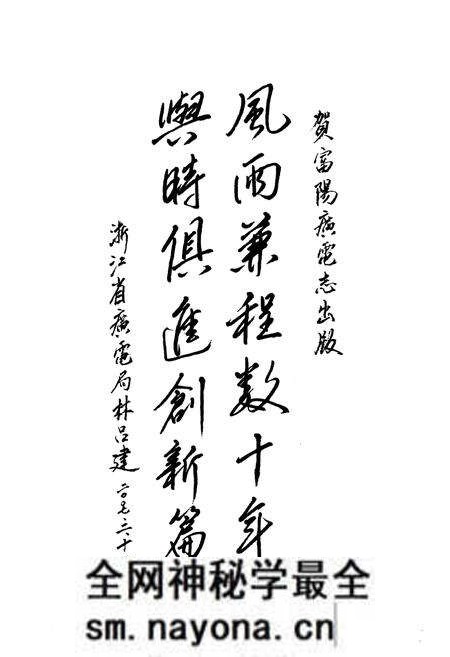 賀富陽廣電志出版
風雨兼程数十年
與時俱進創新篇
浙江省廣電局林呂建
二〇〇七.三.十
全网神秘学最全
sm.nayona.cn